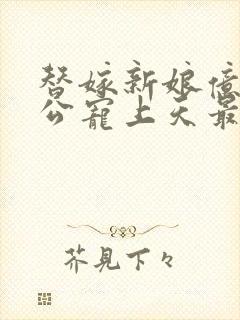 替嫁新娘億
公寵上天最
芥見下々